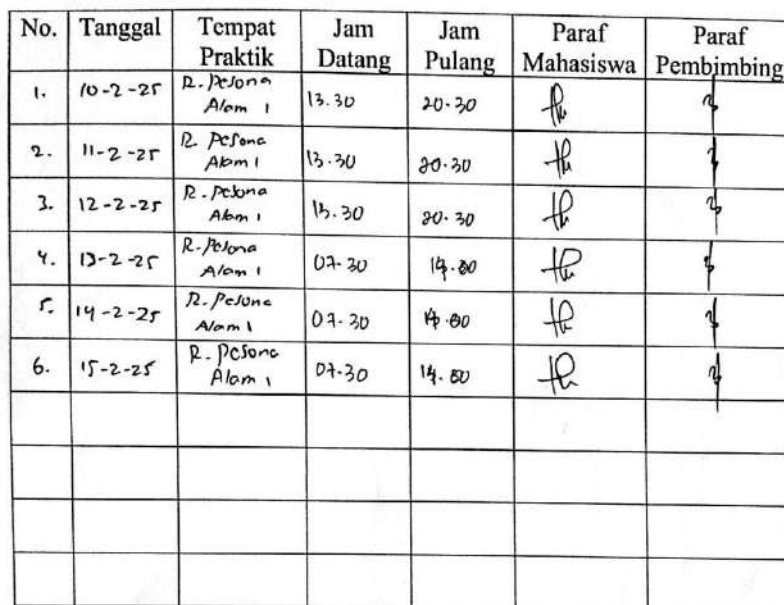 No. Tanggal Tempat Praktik Jam Datang Jam Pulang Paraf Mahasiswa Paraf Pembimbing
1. 10-2-25 R. Pesona Alam 1 13.30 20.30
2. 11-2-25 R. Pesona Alam 1 13.30 20.30
3. 12-2-25 R. Pesona Alam 1 13.30 20.30
4. 13-2-25 R. Pesona Alam 1 07.30 14.00
5. 14-2-25 R. Pesona Alam 1 07.30 14.00
6. 15-2-25 R. Pesona Alam 1 07.30 14.00